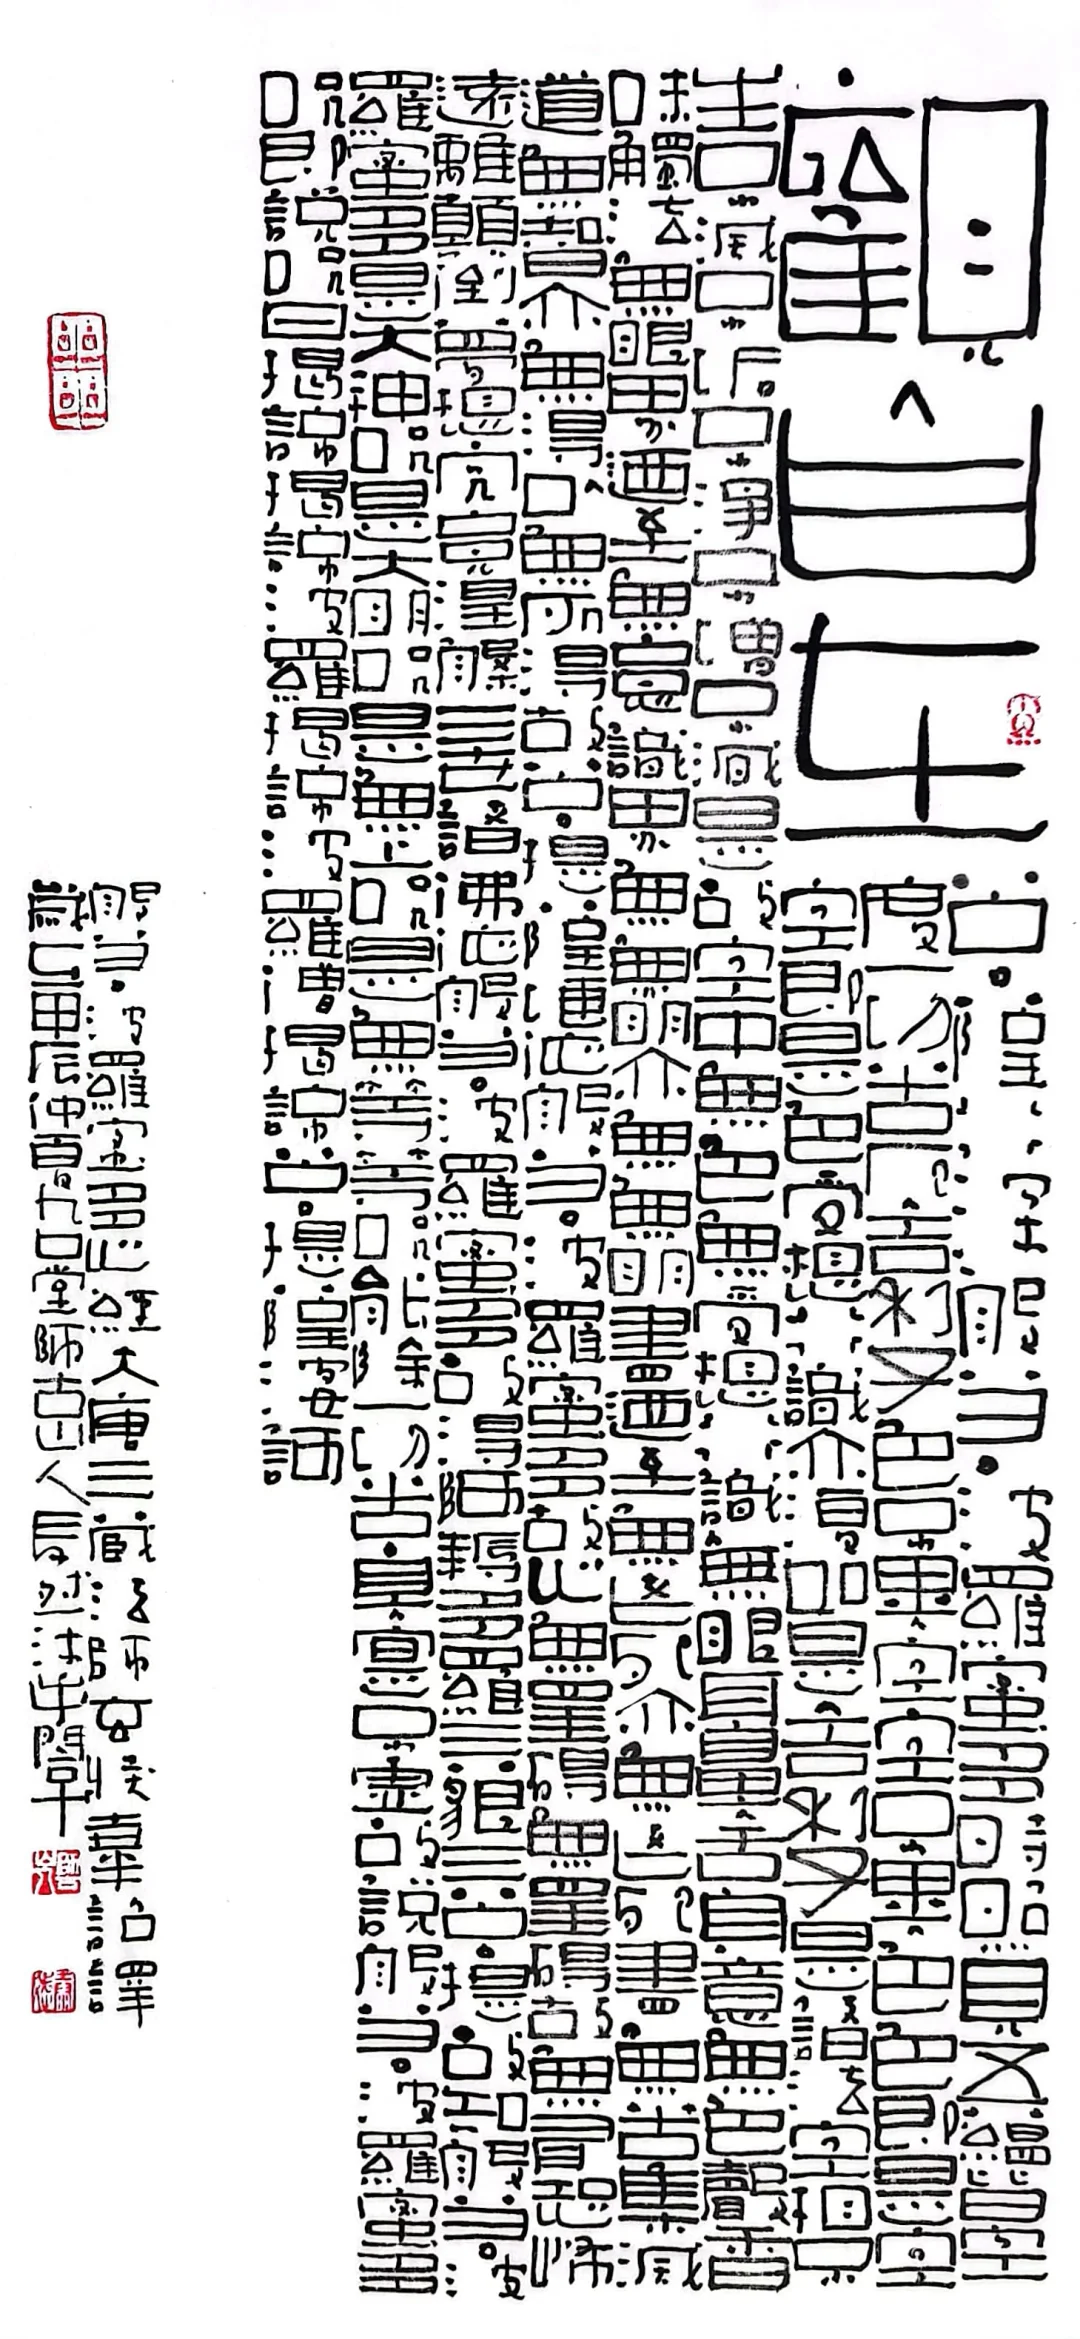 觀自在
菩薩行深般若波羅蜜多時照見五蘊皆空
度一切苦厄舍利子色不異空空不異色色即是空
空即是色受想行識亦復如是舍利子是諸法空相不
生不滅不垢不淨不增不減是故空中無色無受想行識無眼耳鼻舌身意無色聲香
味觸法無眼界乃至無意識界無無明亦無無明盡乃至無老死亦無老死盡無苦集滅
道無智亦無得以無所得故菩提薩埵依般若波羅蜜多故心無罣礙無罣礙故無有恐怖
遠離顛倒夢想究竟涅槃三世諸佛依般若波羅蜜多故得阿耨多羅三藐三菩提故知般若波
羅蜜多是大神咒是大明咒是無上咒是無等等咒能除一切苦真實不虛故說般若波羅蜜多
咒即說咒曰揭諦揭諦波羅揭諦波羅僧揭諦菩提薩婆訶
般若波羅蜜多心經大唐三藏法師玄奘奉詔譯
甲辰仲夏九口堂師古山人長然沐手